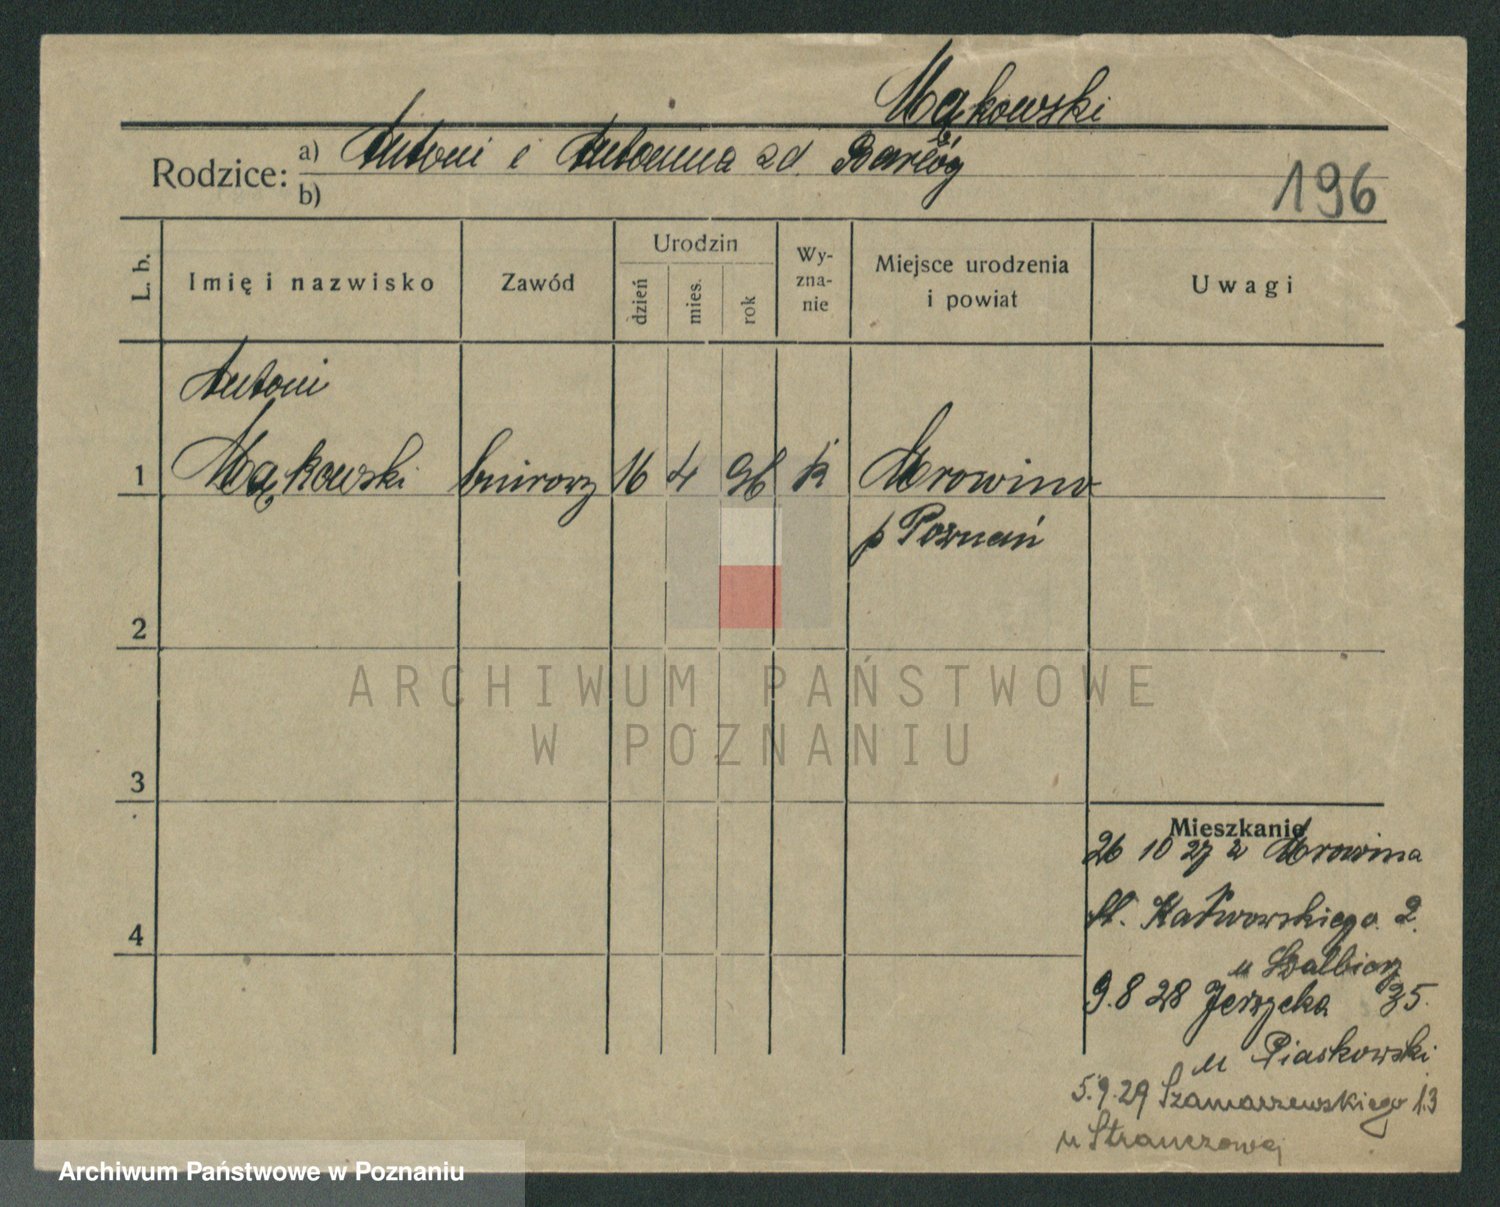 Mąkowski
Rodzice: a) Antoni i Antonina zd. Barłóg
b)
196
L. b. Imię i nazwisko Zawód Urodzin dzień mies. rok Wy-zna-nie Miejsce urodzenia i powiat Uwagi
Antoni
1 Mąkowski biurowy 16 4 96 k Mrowino
p Poznań
2
ARCHIWUM PAŃSTWOWE
W POZNANIU
3
Mieszkanie
26 10 27 z Mrowina
4
9.8 28 Jeżycka 35.
u Piaskowski
5.9.29 Szamarzewskiego 13
u
Archiwum Państwowe w Poznaniu